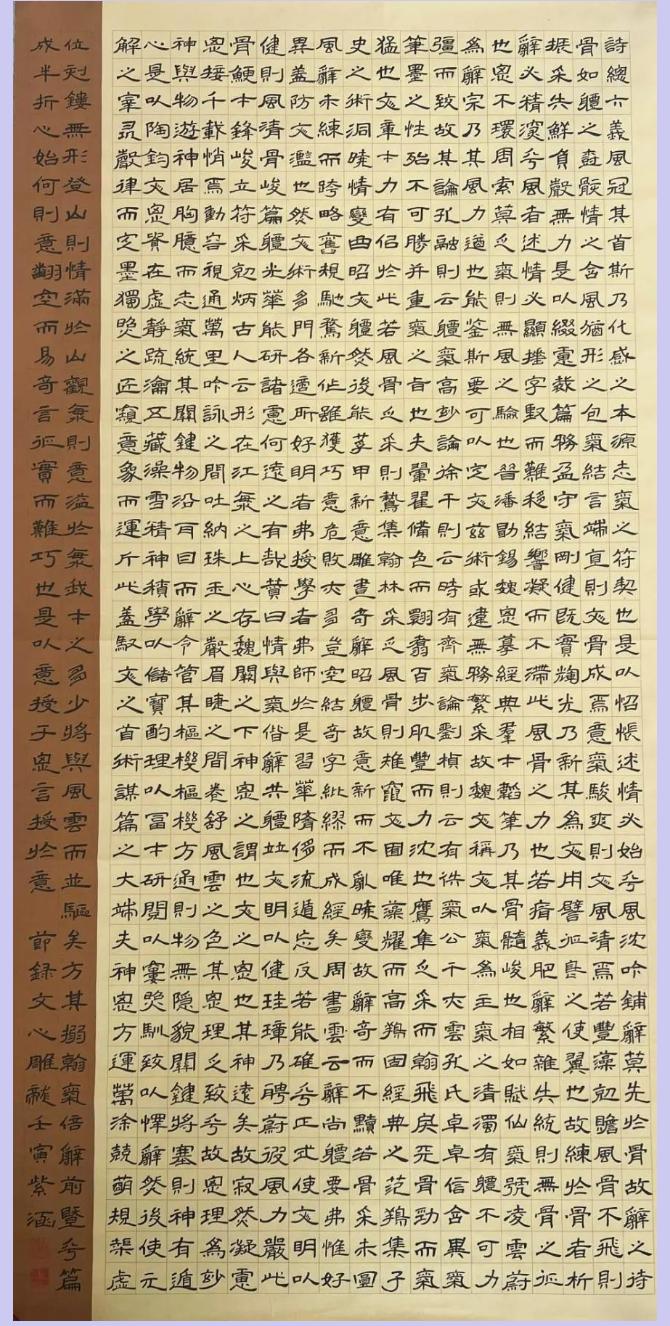 詩總六義風冠其首斯乃化感之本源志氣之符契也是以怊悵述情必始乎風沈吟鋪辭莫先於骨故辭之待
骨如體之樹骸情之含風猶形之包氣結言端直則文骨成焉意氣駿爽則文風清焉若豐藻剋贍風骨不飛則
振采失鮮負聲無力是以綴慮裁篇務盈守氣剛健既實輝光乃新其為文用譬征鳥之使翼也故練於骨者析
辭必精深乎風者述情必顯捶字堅而難移結響凝而不滯此風骨之力也若瘠義肥辭繁雜失統則無骨之徵
也思不環周索莫乏氣則無風之驗也昔潘勖錫魏思摹經典羣才韜筆乃其骨髓峻也相如賦仙氣號凌雲蔚
為辭宗乃其風力遒也能鋻斯要可以定文茲術或違無務繁采故魏文稱文以氣為主氣之清濁有體不可力
彊而致故其論孔融則云體氣高妙論徐幹則云時有齊氣論劉楨則云有佚氣公幹亦云孔氏卓卓信含異氣
筆墨之性殆不可勝并重氣之旨也夫翬翟備色而翾翥百步肌豐而力沈也鷹隼乏采而翰飛戾天骨勁而氣
猛也文章才力有侣於此若風骨乏采則鷙集翰林采乏風骨則雉竄文囿唯藻耀而高翔固經典之范翔集子
史之術洞曉情變曲昭文體然後能莩甲新意雕晝奇辭昭體故意新而不亂曉變故辭奇而不黷若骨采未圓
風辭未練而跨略舊規馳騖新作雖獲巧意危敗亦多豈空結奇字紕繆而成經矣周書雲云辭尚體要弗惟好
異蓋防文濫也然文術多門各適所好明者弗授學者弗師於是習華隨侈流遁忘反若能確乎正式使文明以
健則風清骨峻篇體光華能研諸慮何遠之有哉贊曰情與氣偕辭共體並文明以健珪璋乃聘蔚彼風力嚴此
骨鯁才鋒峻立符采剋炳古人云形在江海之上心存魏闕之下神思之謂也文之思也其神遠矣故寂然凝慮
思接千載悄焉動容視通萬里吟詠之間吐納珠玉之聲眉睫之間卷舒風雲之色其思理之致乎故思理為妙
神與物遊神居胸臆而志氣統其關鍵物沿耳目而辭令管其樞機樞機方通則物無隱貌關鍵將塞則神有遁
心是以陶鈞文思貴在虛靜疏瀹五藏澡雪精神積學以儲寶酌理以富才研閱以窮照馴致以懌辭然後使元
解之宰尋聲律而定墨獨照之匠窺意象而運斤此蓋馭文之首術謀篇之大端夫神思方運萬塗競萌規榘虛
位刻鏤無形登山則情滿於山觀海則意溢於海我才之多少將與風雲而並驅矣方其搦翰氣倍辭前暨乎篇
成半折心始何則意翻空而易奇言徵實而難巧也是以意授于思言授於意 節録文心雕龍壬寅紫涵